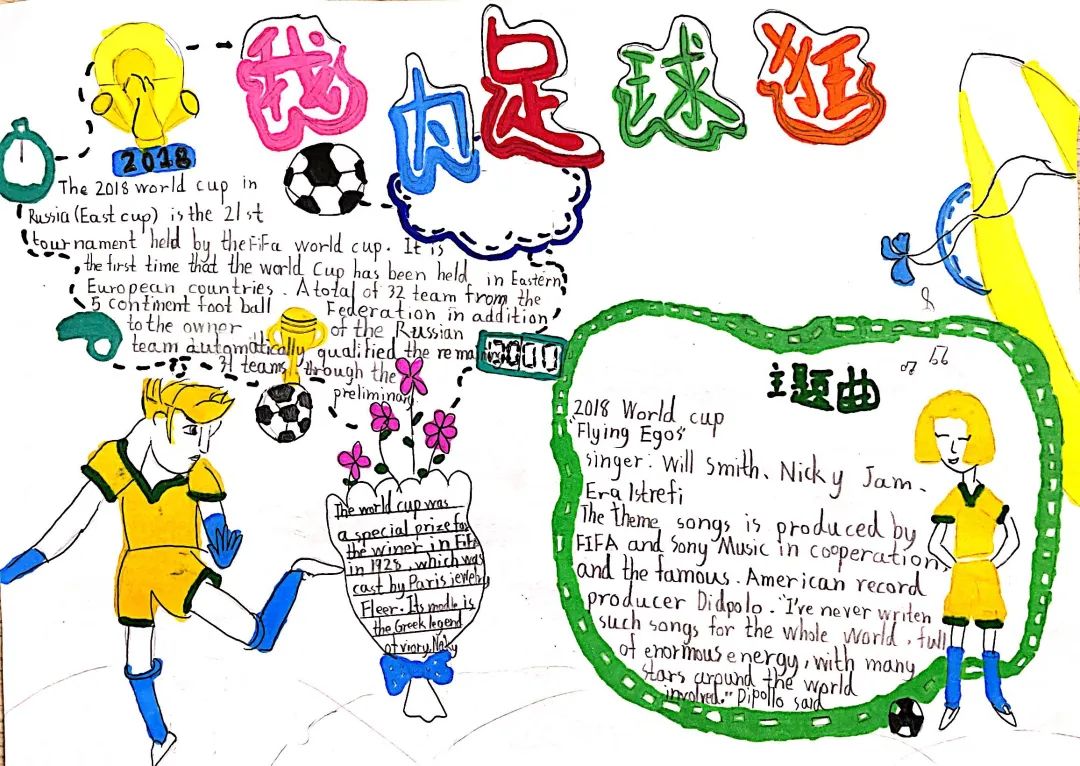 我的足球狂
2018
The 2018 world cup in
Russia (East cup) is the 21st
tournament held by the FiFa world cup. It is
the first time that the world Cup has been held in Eastern
European countries. A total of 32 team from the
5 continment foot ball Federation in addition
to the owner of the Russian
team automatically qualified the remaining
31 teams through the
preliminary.
The world cup was
a special prize for
the winer in Fifa
in 1928, which was
cast by Paris jewelry
Fleer. Its modle is
the Greek legend
of viory. Naky
主题曲
2018 World cup
"Flying Egos"
singer: Will Smith、Nicky Jam、
Era Istrefi
The theme songs is produced by
FIFA and Sony Music in cooperation,
and the famous. American record
producer Didpolo. "I've never writen
such songs for the whole world, full
of enormous energy, with many
stars around the world
involved." Dipollo said